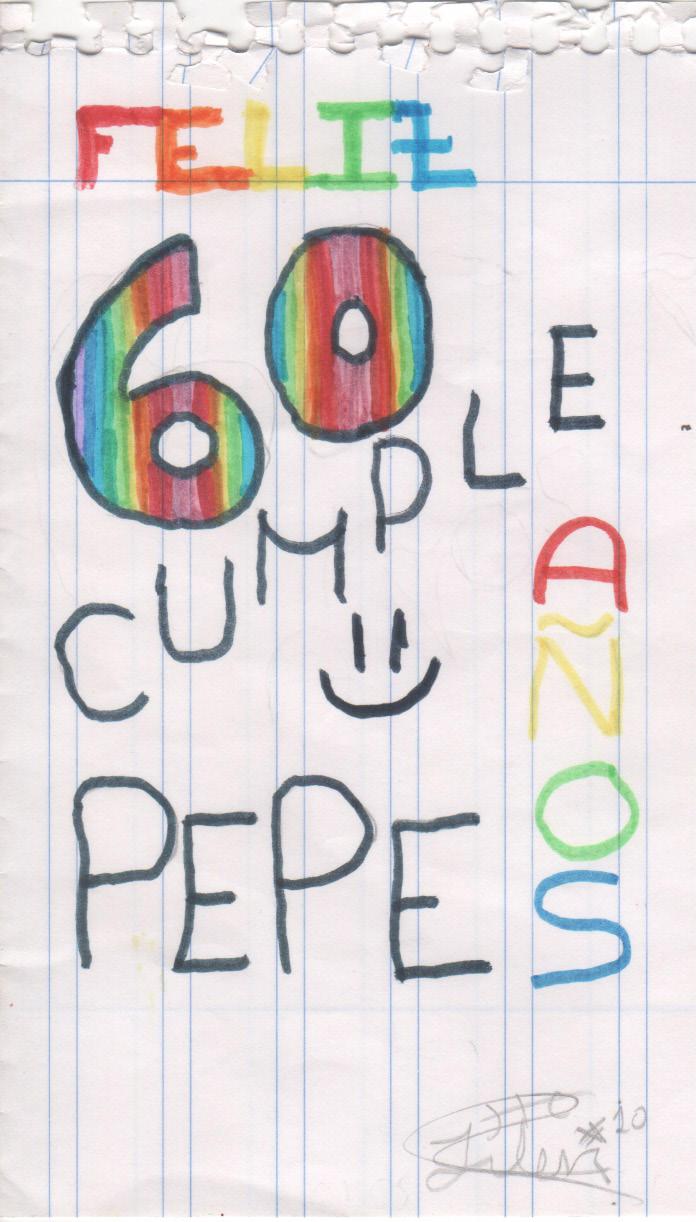 FELIZ
60
CUMPLE
AÑOS
PEPE
10